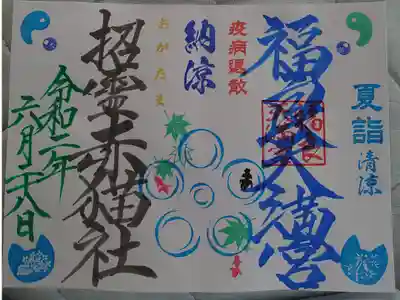 夏詣 清涼
福良天満宮
疫病退散
納涼
おがたま
招霊赤猫社
令和二年
六月二十八日